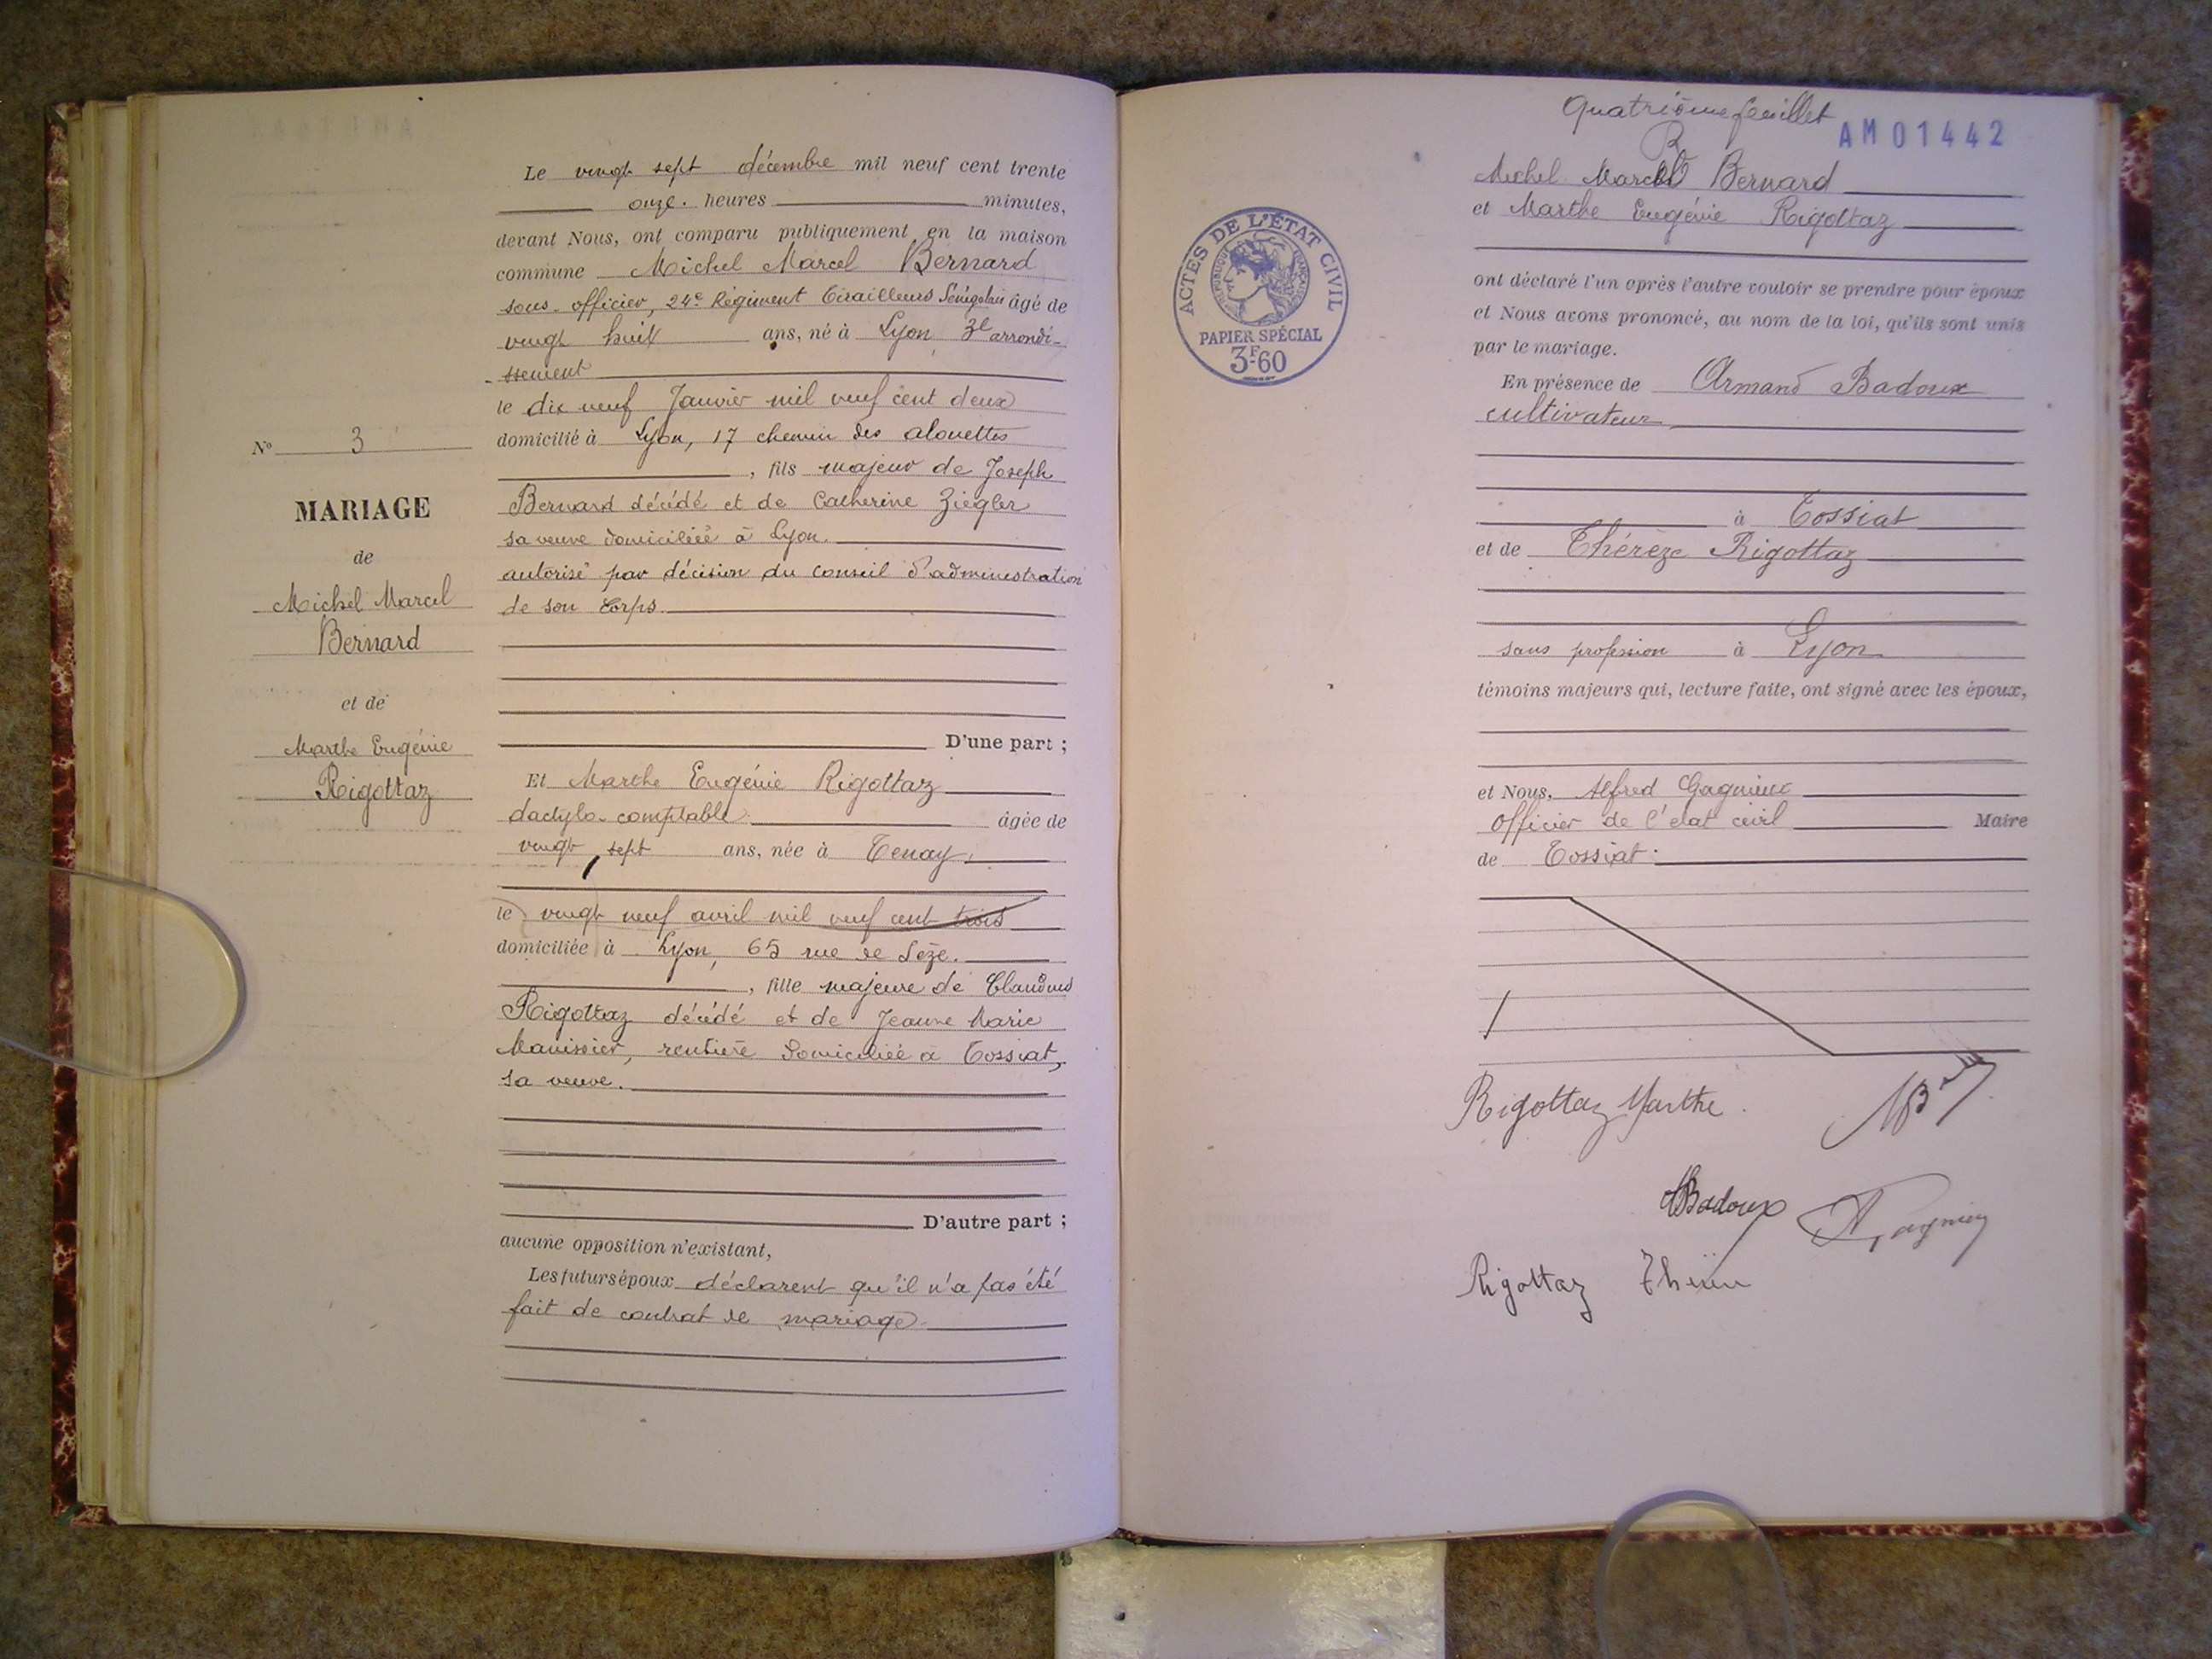 Le vingt sept décembre mil neuf cent trente
onze. heures minutes,
devant Nous, ont comparu publiquement en la maison
commune Michel Marcel Bernard
sous-officier, 24e Régiment Tirailleurs Sénégalais âgé de
vingt huit ans, né à Lyon 3e arrondi-
-ssement
le dix neuf Janvier mil neuf cent deux
domicilié à Lyon, 17 chemin des alouettes
, fils majeur de Joseph
Bernard décédé et de Catherine Ziegler
sa veuve domiciliée à Lyon.
autorisé par décision du conseil d'administration
de son Corps.
D'une part ;
Et Marthe Eugénie Rigottaz
dactylo-comptable âgée de
vingt sept ans, née à Tenay,
le vingt neuf avril mil neuf cent trois
domiciliée à Lyon, 65 rue de Sèze.
, fille majeure de Claudius
Rigottaz décédé et de Jeanne Marie
Manissier, rentière domiciliée à Tossiat,
sa veuve.
D'autre part ;
aucune opposition n'existant,
Les futurs époux déclarent qu'il n'a pas été
fait de contrat de mariage.
No 3
MARIAGE
de
Michel Marcel
Bernard
et de
Marthe Eugénie
Rigottaz
quatrième feuillet
AM01442
Michel Marcel Bernard
et Marthe Eugénie Rigottaz
ont déclaré l'un après l'autre vouloir se prendre pour époux
et Nous avons prononcé, au nom de la loi, qu'ils sont unis
par le mariage.
En présence de Armand Badoux
cultivateur
à Tossiat
et de Thérèze Rigottaz
sans profession à Lyon
témoins majeurs qui, lecture faite, ont signé avec les époux,
et Nous, Alfred Gagnieux
Officier de l'état civil Maire
de Tossiat.
ACTES DE L'ÉTAT CIVIL
RÉPUBLIQUE FRANÇAISE
PAPIER SPÉCIAL
3F.60
Rigottaz Marthe
Badoux
Rigottaz